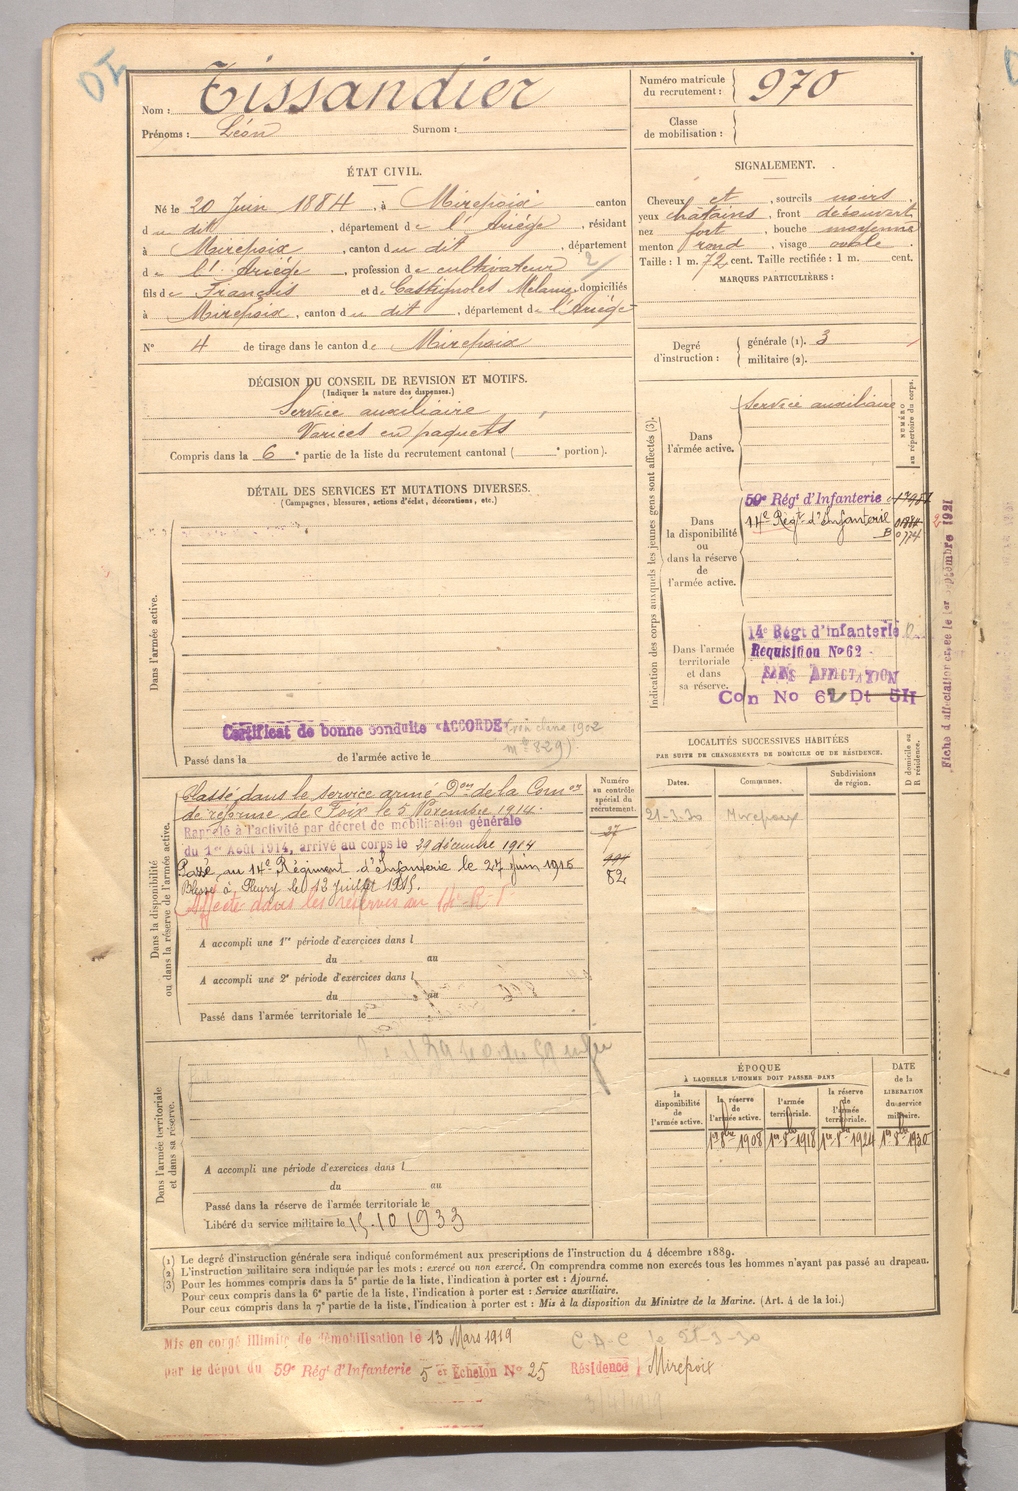 Nom : Tissandier
Prénoms : Léon Surnom :
Numéro matricule du recrutement : 970
Classe de mobilisation :
ÉTAT CIVIL.
Né le 20 Juin 1884, à Mirepoix canton
du dit, département de l'Ariège, résidant
à Mirepoix, canton du dit, département
de l'Ariège, profession de cultivateur
fils de François et de Castignoles Mélanie, domiciliés
à Mirepoix, canton du dit, département de l'Ariège
N° 4 de tirage dans le canton de Mirepoix
SIGNALEMENT.
Cheveux et, sourcils noirs
yeux châtains, front découvert
nez fort, bouche moyenne
menton rond, visage ovale
Taille : 1 m. 72 cent. Taille rectifiée : 1 m. cent.
MARQUES PARTICULIÈRES :
Degré d'instruction : générale (1). 3
militaire (2).
DÉCISION DU CONSEIL DE REVISION ET MOTIFS.
(Indiquer la nature des dispenses.)
Service auxiliaire
Varices en paquets
Compris dans la 6e partie de la liste du recrutement cantonal ( e portion).
DÉTAIL DES SERVICES ET MUTATIONS DIVERSES.
(Campagnes, blessures, actions d'éclat, décorations, etc.)
Dans l'armée active.
Certificat de bonne conduite "ACCORDÉ"
Passé dans la de l'armée active le
Indication des corps auxquels les jeunes gens sont affectés (3).
NUMÉRO au répertoire du corps.
Dans l'armée active.
Service auxiliaire
Dans la disponibilité ou dans la réserve de l'armée active.
59e Régt d'Infanterie
14e Régt d'Infanterie
Dans l'armée territoriale et dans sa réserve.
14e Régt d'infanterie
Requisition No 62
SANS AFFECTATION
Con No 62 Dt 5H
Fiche d'affectation créée le 1er septembre 1921
Dans la disponibilité ou dans la réserve de l'armée active.
Classé dans le service armé Don de la Comon
de réforme de Foix le 5 Novembre 1914.
Rappelé à l'activité par décret de mobilisation générale
du 1er Août 1914, arrivé au corps le 29 décembre 1914
Passé au 14e Régiment d'Infanterie le 27 juin 1916
Blessé à Fleury le 13 juillet 1916.
Affecté dans les réserves au 14e R.I
Numéro au contrôle spécial du recrutement.
27
991
82
A accompli une 1re période d'exercices dans l
du au
A accompli une 2e période d'exercices dans l
du au
Passé dans l'armée territoriale le
LOCALITÉS SUCCESSIVES HABITÉES
PAR SUITE DE CHANGEMENTS DE DOMICILE OU DE RÉSIDENCE.
Dates. Communes. Subdivisions de région. D domicile ou R résidence.
21-3-30 Mirepoix
Dans l'armée territoriale et dans sa réserve.
A accompli une période d'exercices dans l
du au
Passé dans la réserve de l'armée territoriale le
Libéré du service militaire le 15.10.1933
ÉPOQUE
À LAQUELLE L'HOMME DOIT PASSER DANS
la disponibilité de l'armée active.
la réserve de l'armée active.
l'armée territoriale.
la réserve de l'armée territoriale.
DATE de la LIBÉRATION du service militaire.
1er 8bre 1908 1er 8bre 1918 1er 8bre 1924 1er 8bre 1930
(1) Le degré d'instruction générale sera indiqué conformément aux prescriptions de l'instruction du 4 décembre 1889.
(2) L'instruction militaire sera indiquée par les mots : exercé ou non exercé. On comprendra comme non exercés tous les hommes n'ayant pas passé au drapeau.
(3) Pour les hommes compris dans la 5e partie de la liste, l'indication à porter est : Ajourné.
Pour ceux compris dans la 6e partie de la liste, l'indication à porter est : Service auxiliaire.
Pour ceux compris dans la 7e partie de la liste, l'indication à porter est : Mis à la disposition du Ministre de la Marine. (Art. 4 de la loi.)
Mis en congé illimité de démobilisation le 13 Mars 1919
par le dépôt du 59e Régt d'Infanterie 5 er Échelon No 25 Résidence Mirepoix
C-A-C le 21-3-30